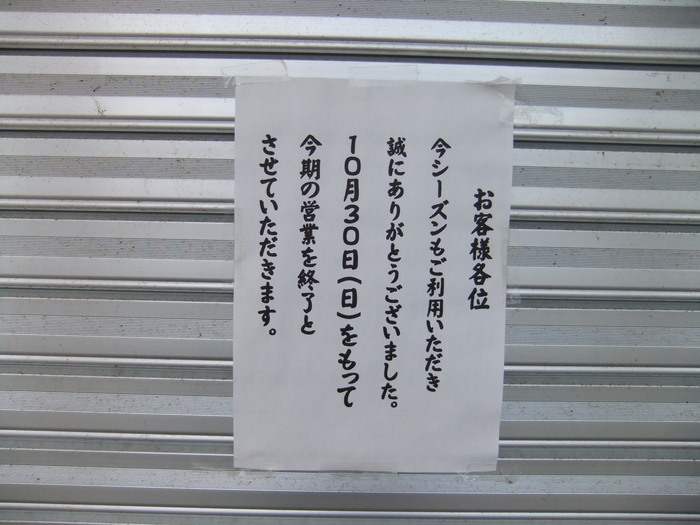 お客様各位
今シーズンもご利用いただき
誠にありがとうございました。
１０月３０日（日）をもって
今期の営業を終了と
させていただきます。